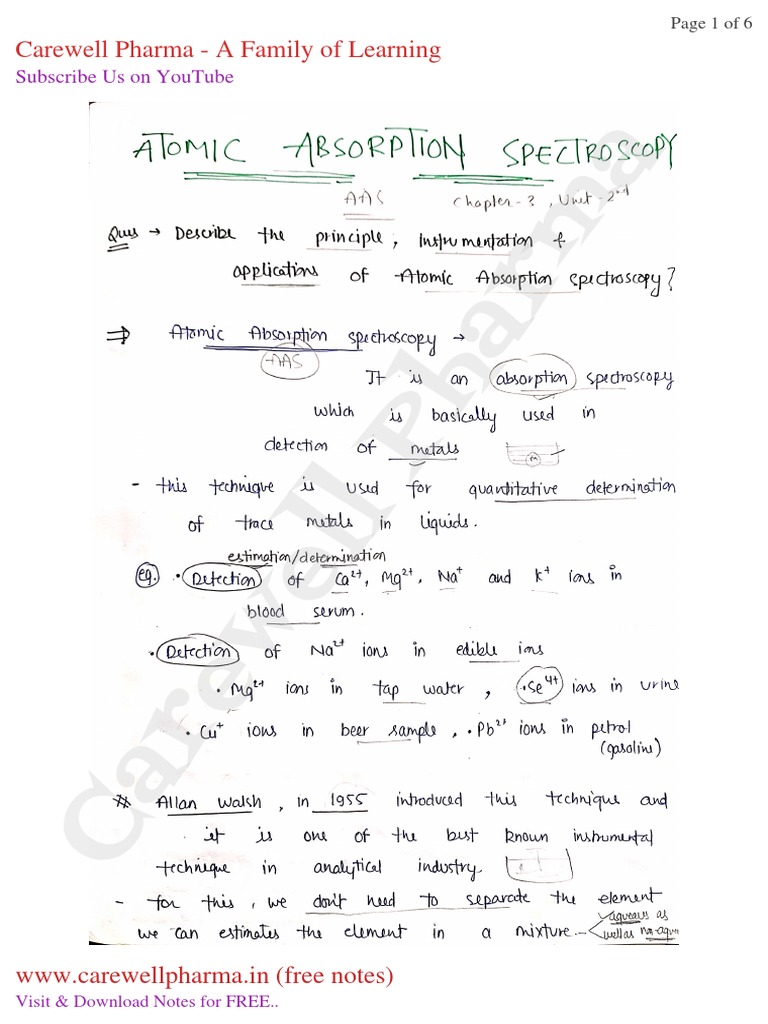 Page 1 of 6
Carewell Pharma - A Family of Learning
Subscribe Us on YouTube
ATOMIC ABSORPTION SPECTROSCOPY
AAS Chapter-3, Unit-2nd
Ques → Describe the principle, Instrumentation &
applications of Atomic Absorption spectroscopy?
⇒ Atomic Absorption spectroscopy →
AAS
It is an absorption spectroscopy
which is basically used in
detection of metals
- this technique is used for quantitative determination
of trace metals in liquids.
estimation/determination
eg. • Detection of Ca²⁺, Mg²⁺, Na⁺ and K⁺ ions in
blood serum.
• Detection of Na²⁺ ions in edible ions
• Mg²⁺ ions in tap water, • Se⁴⁺ ions in urine
• Cu⁺ ions in beer sample, • Pb²⁺ ions in petrol
(gasoline)
⁂ Allan Walsh, in 1955 introduced this technique and
it is one of the best known instrumental
technique in analytical industry.
- for this, we don't need to separate the element
we can estimates the element in a mixture.
aqueous as
well as non-aqu
Carewell Pharma
www.carewellpharma.in (free notes)
Visit & Download Notes for FREE..